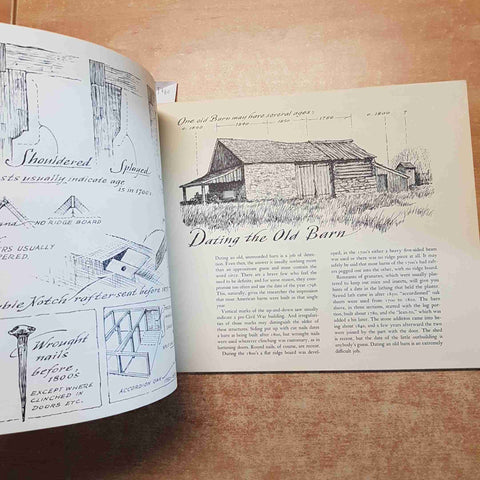 Shouldered
Splayed
usually indicate age
is in 1700's.
and
NO RIDGE BOARD
USUALLY
Notch rafter seat before
Wrought
nails
before
1800's
EXCEPT WHERE
CLINCHED IN
DOORS ETC.
ACCORDION
One old Barn may have several ages:
c. 1800
1840
1850
1780
c. 1800
?
Dating the Old Barn
Dating an old, unrestored barn is a job of detec-
tion. Even then, the answer is usually nothing more
than an approximate guess and most connote the
word circa. There are a brave few who feel the
need to be definite, and for some reason, they com-
promise most often and use the date of the year 1798.
This, naturally, gives the researcher the impression
that most American barns were built in that single
year.
Vertical marks of the up-and-down saw usually
indicate a pre-Civil War building. And irregulari-
ties of those marks may distinguish the older of
these structures. Siding put up with cut nails dates
a barn as being built after 1800, but wrought nails
were used wherever clinching was customary, as in
battening doors. Round nails, of course, are recent.
Dating the 1800's a flat ridge board was devel-
oped, as the 1700's either a heavy five-sided beam
was used or there was no ridge piece at all. It may
safely be said that most barns of the 1700's had raft-
ers pegged out onto the other, with no ridge board.
Remnants of granaries, which were usually plas-
tered to keep out mice and insects, will give you
hints of a date in the lathing that held the plaster.
Sawed lath came in after 1825; "accordioned" oak
sheets were used from 1700 to 1800. The barn
above, in three sections, started with the log por-
tion, built about 1780, and the "lean-to," which was
added a bit later. The stone addition came into be-
ing about 1840, and a few years afterward the two
were joined by the part with the door. The shed
is recent, but the date of the little outbuilding is
anybody's guess. Dating an old barn is an extremely
difficult job.